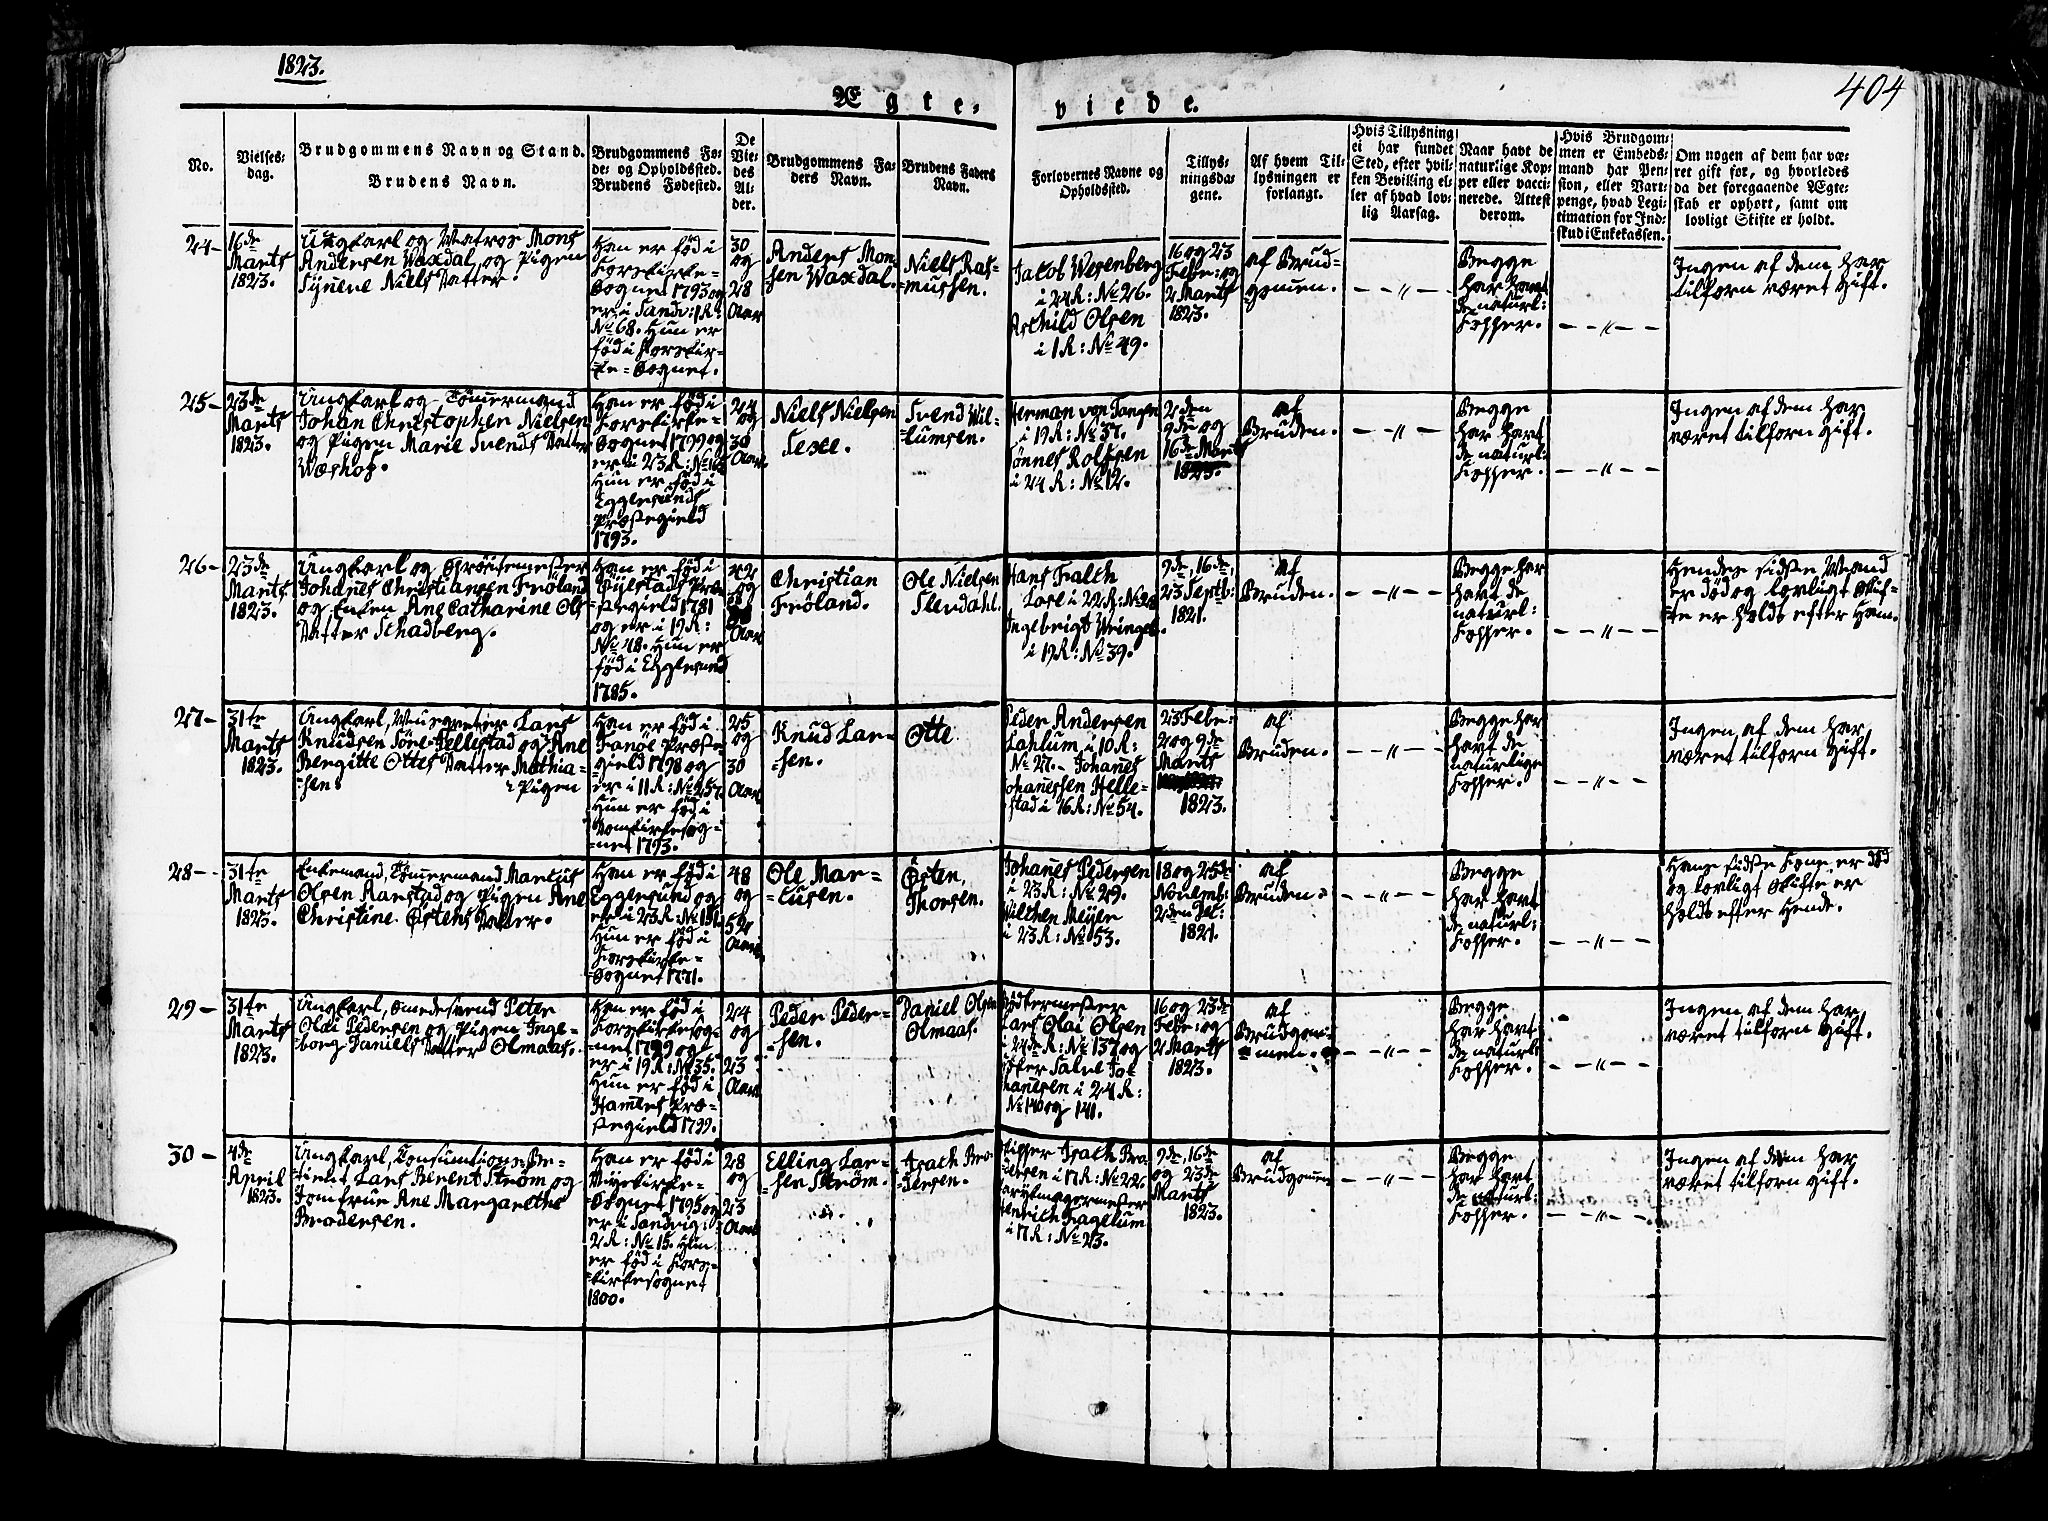 1823.
404
Ægte-
viede.
No.
Vielses-
dag.
Brudgommens Navn og Stand.
Brudens Navn.
Brudgommens Fø-
de- og Opholdssted.
Brudens Fødested.
De
Vie-
des
Al-
der.
Brudgommens Fa-
ders Navn.
Brudens Faders
Navn.
Forlovernes Navne og
Opholdssted.
Tillys-
ningsda-
gene.
Af hvem Til-
lysningen er
forlangt.
Hvis Tillysning
ei har fundet
Sted, efter hvil-
ken Bevilling el-
ler af hvad lov-
lig Aarsag.
Naar havt de
naturlige Kop-
per eller vacci-
nerede. Attest
derom.
Hvis Brudgom-
men er Embeds-
mand har Pen-
sion, eller Vart-
penge, hvad Legi-
timation for Ind-
skud i Enkekassen.
Om nogen af dem har væ-
ret gift før, og hvorledes
da det foregaaende Ægte-
skab er ophørt, samt om
lovligt Skifte er holdt.
24-
16de
Marts
1823.
Ungkarl og Matros Mons
Andersen Waxdal og Pigen
Syneve Niels Datter.
Han er föd i
Korskirke-
Sognet 1793 og
er i Sandv: 1 R:
No 68. Hun er
föd i Korskir-
ke-Sognet.
30
og
28
Aar
Anders Mon-
sen Waxdal.
Niels Ras-
mussen.
Jakob Wesenberg
i 24 R: No 26.
Askild Olsen
i 1 R: No 49.
16 og 23
Febr: og
2 Marts
1823.
af Brud-
gomen.
- - " - -
Begge
har havt
de naturl:
Kopper.
- - " - -
Ingen af dem har
tilforn været Gift.
25-
23de
Marts
1823.
Ungkarl og Tömermand
Johan Christopher Nielsen
og Pigen Marie Svends Datter
Han er föd i
Korskirke-
Sognet 1799 og
er i 23 R:
Hun er föd i
Præstegield
1793.
24
og
30
Aar.
Niels Nielsen
Svend Wil-
lumsen.
Herman von Tangen
i 19 R: No 37.
Tönnes Rolfsen
i 24 R: No 12.
2den
9de og
16de Marts
1823.
af
Bruden.
- - " - -
Begge
har havt
de naturl:
Kopper.
- - " - -
Ingen af dem har
været tilforn Gift.
26-
23de
Marts
1823.
Johanes Christiansen Fröland
og Enken Ane Catharine Ols
Datter Schadberg.
Han er föd i
-stegield 1781
og er i 19 R:
No 48. Hun er
föd i Egglesund
1785.
42
og
Aar
Christian
Fröland.
Ole Nielsen
Hans Falch
i 22 R:
Ingebrigt
i 19 R: No 39.
9de, 16de,
23 Septb:
1821.
af
Bruden.
- - " - -
Begge har
havt de
naturl:
Kopper.
- - " - -
Hendes sidste Mand
er död og lovligt Skif-
te er holdt efter Ham.
27-
31te
Marts
1823.
Knudsen Söre-Hellestad og Ane
Bergitte Ottes Datter Mathia-
-sen. Pigen
Han er föd i
Fanöe Præste
gield 1798 og
er i 11 R: No 257.
Hun er föd i
Domkirkesog-
-net 1793.
25
og
30
Aar.
Knud Lar-
-sen.
Otte
Peder Andersen
i 10 R:
No 27. - Johanes
Johanessen Helle-
stad i 16 R: No 54.
23 Febr:
2 og 9de
Marts
1823.
af
Bruden.
- - " - -
Begge har
havt de
naturlige
Kopper.
- - " - -
Ingen af dem har
været tilforn Gift.
28-
31te
Marts
1823.
Enkemand, Tömermand Marcus
Olsen Ranstad og Pigen Ane
Christine Östens Datter.
Han er föd i
Egglesund og
er i 23 R: No 151.
Hun er föd i
Korskirke-
-Sognet 1771.
48
og
52
Aar.
Ole Mar-
-cusen.
Östen
Thorsen.
Johanes Pedersen
i 23 R: No 29.
Wilchen Meÿer
i 23 R: No 53.
18 og 25de
Novemb:
2den De:
1821.
af
Bruden.
- - " - -
Begge
har havt
de naturl:
Kopper.
- - " - -
Hans sidste Kone er död
og lovligt Skifte er
holdt efter Hende.
29-
31te
Marts
1823.
Ungkarl, Smedesvend Peter
Olai Pedersen og Pigen Inge-
-borg Daniels Datter Olmaas.
Han er föd i
Korskirkesog-
-net 1799 og
er i 19 R: No 35.
Hun er föd i
Hamers Præ-
stegield 1799.
24
og
23
Aar
Peder Peder-
-sen.
Daniel Olsen
Olmaas.
Lars Olai Olsen
i 24de R: No 137 og
Salve Jo-
hanesen i 24 R:
No 140 og 141.
16 og 23de
Febr: og
2 Marts
1823.
af
Brudgom-
-men.
- - " - -
Begge
har havt
de naturl:
Kopper.
- - " - -
Ingen af dem har
været tilforn Gift.
30-
4de
April
1823.
Ungkarl, Consumtions-Be-
-tient Lars Berent Ström og
Jomfrue Ane Margarethe
Brodersen.
Han er föd i
Nÿekirke-
-Sognet 1795 og
er i Sandvig:
2 R: No 15. Hun
er föd i Kors-
-kirkesognet
1800.
28
og
23
Aar
Elling Lar-
-sen Ström.
Isach Bro-
-dersen.
Isach Bro-
dersen i 17 R: No 22.
Henrich Fagelum
i 17 R: No 23.
9de, 16de
og 23de
Marts
1823.
af
Brudgomen
- - " - -
Begge
har havt
de naturl:
Kopper.
- - " - -
Ingen af dem har
været tilforn Gift.